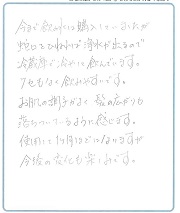 今まで飲み水は購入していましたが
蛇口をひねれば浄水が出るので
冷蔵庫で冷やして飲んでいます。
クセもなく飲みやすいです。
お肌の調子がよく 髪の広がりも
落ちついているように感じます。
使用して1ヶ月ほどになりますが
今後の変化も楽しみです。